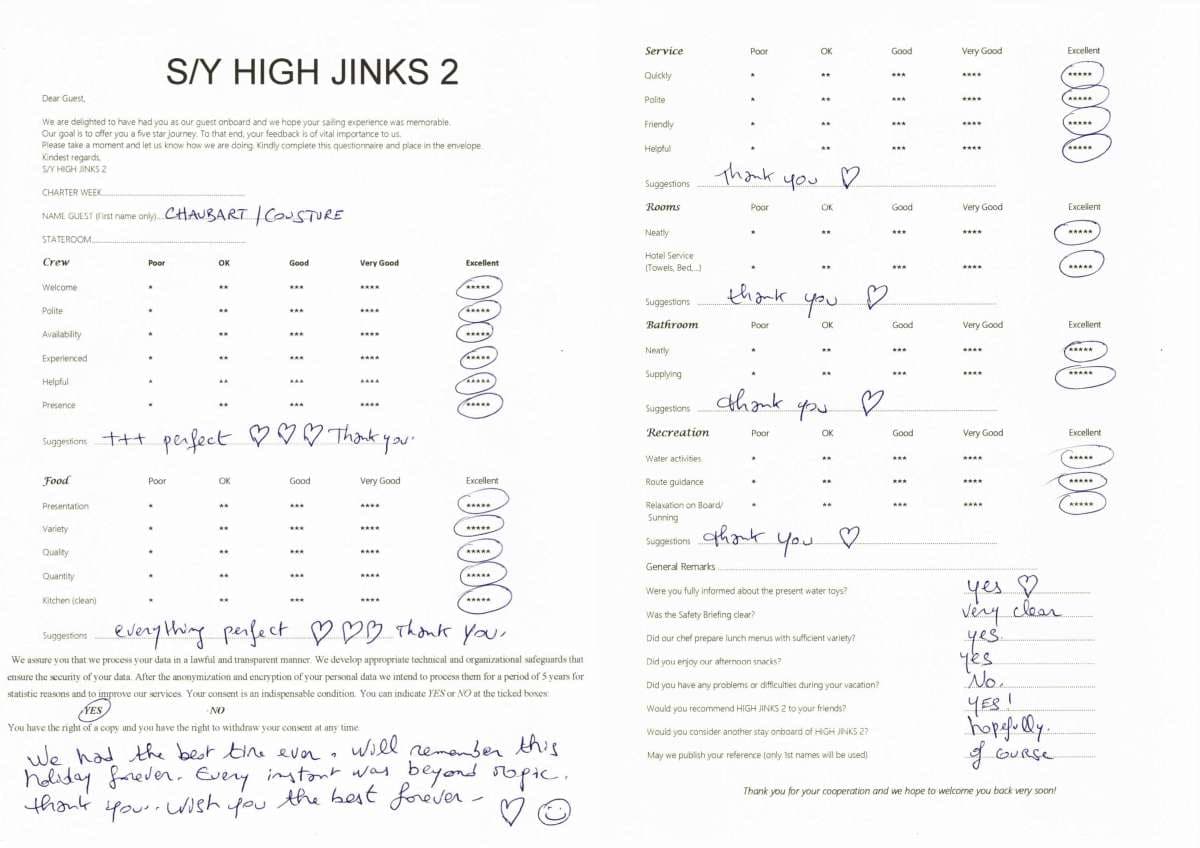 S/Y HIGH JINKS 2
Dear Guest,
We are delighted to have had you as our guest onboard and we hope your sailing experience was memorable.
Our goal is to offer you a five star journey. To that end, your feedback is of vital importance to us.
Please take a moment and let us know how we are doing. Kindly complete this questionnaire and place in the envelope.
Kindest regards,
S/Y HIGH JINKS 2
CHARTER WEEK
NAME GUEST (First name only) CHAUBART / COUSTURE
STATEROOM
Crew Poor OK Good Very Good Excellent
Welcome * ** *** **** *****
Polite * ** *** **** *****
Availability * ** *** **** *****
Experienced * ** *** **** *****
Helpful * ** *** **** *****
Presence * ** *** **** *****
Suggestions +++ perfect ♡ ♡ ♡ Thank you.
Food Poor OK Good Very Good Excellent
Presentation * ** *** **** *****
Variety * ** *** **** *****
Quality * ** *** **** *****
Quantity * ** *** **** *****
Kitchen (clean) * ** *** **** *****
Suggestions everything perfect ♡ ♡ ♡ Thank you.
We assure you that we process your data in a lawful and transparent manner. We develop appropriate technical and organizational safeguards that
ensure the security of your data. After the anonymization and encryption of your personal data we intend to process them for a period of 5 years for
statistic reasons and to improve our services. Your consent is an indispensable condition. You can indicate YES or NO at the ticked boxes:
YES NO
You have the right of a copy and you have the right to withdraw your consent at any time.
We had the best time ever. Will remember this
holiday forever. Every instant was beyond magic.
Thank you.. Wish you the best forever - ♡ ☺
Service Poor OK Good Very Good Excellent
Quickly * ** *** **** *****
Polite * ** *** **** *****
Friendly * ** *** **** *****
Helpful * ** *** **** *****
Suggestions Thank you ♡
Rooms Poor OK Good Very Good Excellent
Neatly * ** *** **** *****
Hotel Service
(Towels, Bed,...) * ** *** **** *****
Suggestions thank you ♡
Bathroom Poor OK Good Very Good Excellent
Neatly * ** *** **** *****
Supplying * ** *** **** *****
Suggestions thank you ♡
Recreation Poor OK Good Very Good Excellent
Water activities * ** *** **** *****
Route guidance * ** *** **** *****
Relaxation on Board/ * ** *** **** *****
Sunning
Suggestions thank you ♡
General Remarks
Were you fully informed about the present water toys? yes ♡
Was the Safety Briefing clear? very clear
Did our chef prepare lunch menus with sufficient variety? yes.
Did you enjoy our afternoon snacks? yes
Did you have any problems or difficulties during your vacation? No.
Would you recommend HIGH JINKS 2 to your friends? YES!
Would you consider another stay onboard of HIGH JINKS 2? hopefully.
May we publish your reference (only 1st names will be used) of course
Thank you for your cooperation and we hope to welcome you back very soon!